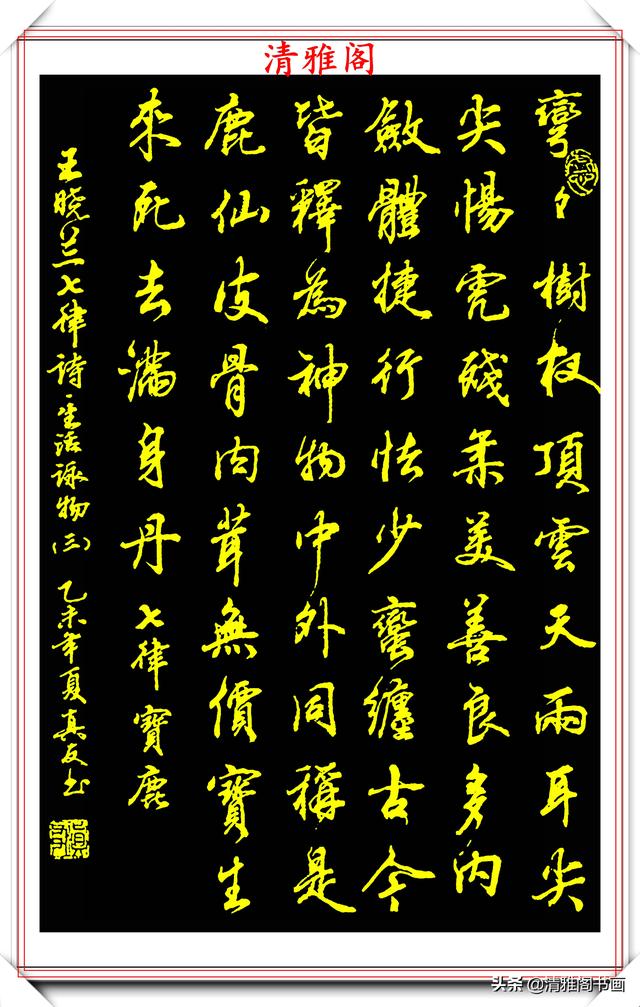 清雅阁
彎々樹杈頂雲天兩耳尖
尖惕虎殘柔美善良多内
斂體捷行怯少蠻纏古今
皆釋為神物中外同稱是
鹿仙皮骨肉茸無價寶生
來死去滿身丹 七律寶鹿
王晓兰七律詩·生活詠物(三) 乙未年夏真友书
头条 @清雅阁书画